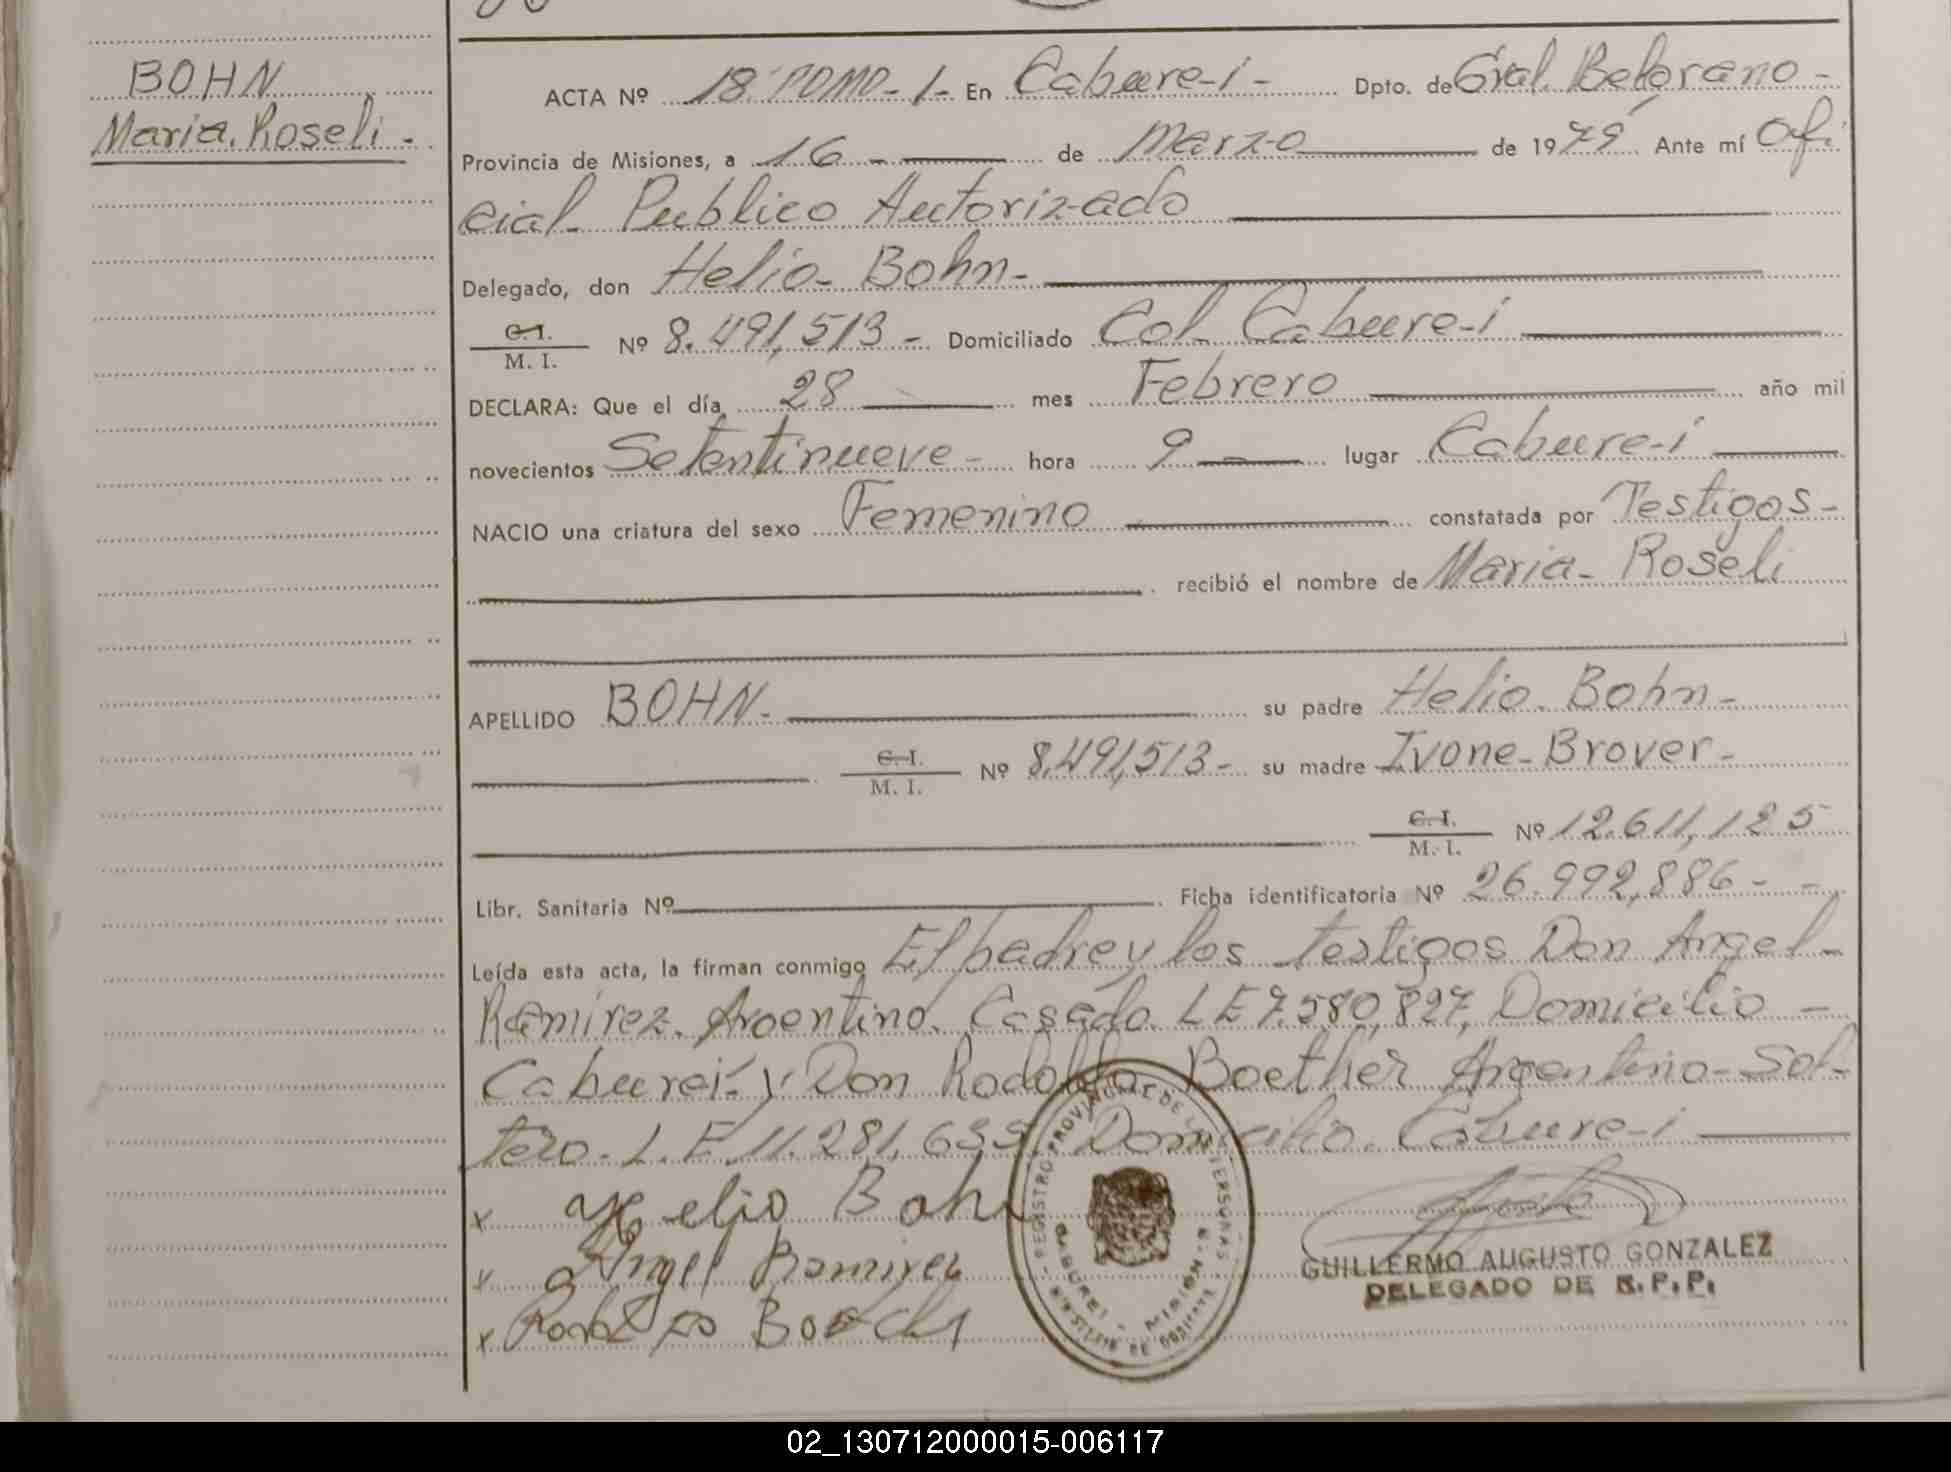 BOHN
Maria. Roseli -
ACTA Nº 18. TOMO - 1 - En Cabure-i - Dpto. de Gral. Belgrano -
Provincia de Misiones, a 16 - de Marzo de 1979 Ante mí Ofi
cial - Publico Autorizado
Delegado, don Helio - Bohn -
C. I. / M. I. Nº 8.491,513 - Domiciliado Col Cabure-i
DECLARA: Que el día 28 mes Febrero año mil
novecientos Setentinueve - hora 9 - lugar Cabure-i
NACIO una criatura del sexo Femenino constatada por Testigos -
recibió el nombre de Maria - Roseli
APELLIDO BOHN - su padre Helio. Bohn -
C. I. / M. I. Nº 8.491,513 - su madre Ivone - Brover -
C. I. / M. I. Nº 12.611,125
Libr. Sanitaria Nº Ficha identificatoria Nº 26.992,886 - -
Leída esta acta, la firman conmigo El padre y los testigos Don Angel -
Ramirez. Argentino. Casado. LE 7.580,827, Domicilio -
Caburei - y Don Rodolfo Boether Argentino - Sol -
tero. L.E. 11.281,635 Domicilio. Cabure-i
x Helio Bohn
x Angel Ramirez
x
REGISTRO PROVINCIAL DE LAS PERSONAS
GUILLERMO AUGUSTO GONZALEZ
DELEGADO DE R.P.P.
02_130712000015-006117